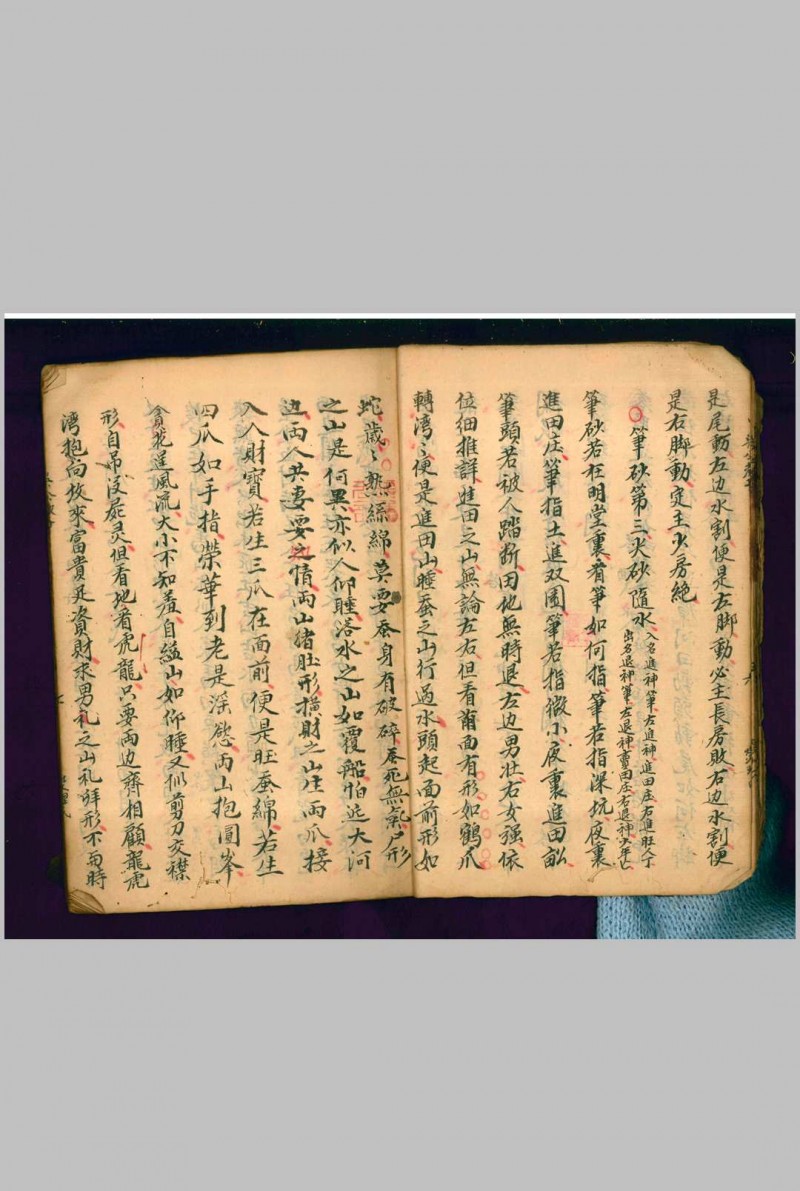 是尾動左边水割便是左脚動必主長房敗右边水割便
是右脚動定主少房絶
筆砂第三尖砂隨水入名進神筆左進神進田庄右進旺人丁
出名退神筆左退神賣田庄右退神少年亡
筆砂若在明堂裏看筆如何指筆若指深坑夜裏
進田庄筆指土進双園筆若指微小夜裏進田畆
筆頭若被人踏断田地無時退左边男壮右女强依
位细推詳進田之山無論左右但看前面有形如鶴爪
轉湾〻便是進田山睡蚕之山行過水頭起面前形如
蛇歲〻熟絲綿莫要蚕身有破碎蚕死無氣尸形
之山是何異亦似人仰睡落水之山如覆船怕逆大河
边両人共妻妥之情両山猪肚形横財之山生両爪接
入人財寳若生三爪在面前便是旺蚕綿若生
四爪如手指榮華到老是滛慾両山抱圓峯
貪花逞風流大小不知羞自縊山如仰睡又似剪刀交襟
形自吊没屍灵但看地着虎龍只要両边齊相顧龍虎
湾抱向放来富貴足資財求男礼之山礼拜形不
時